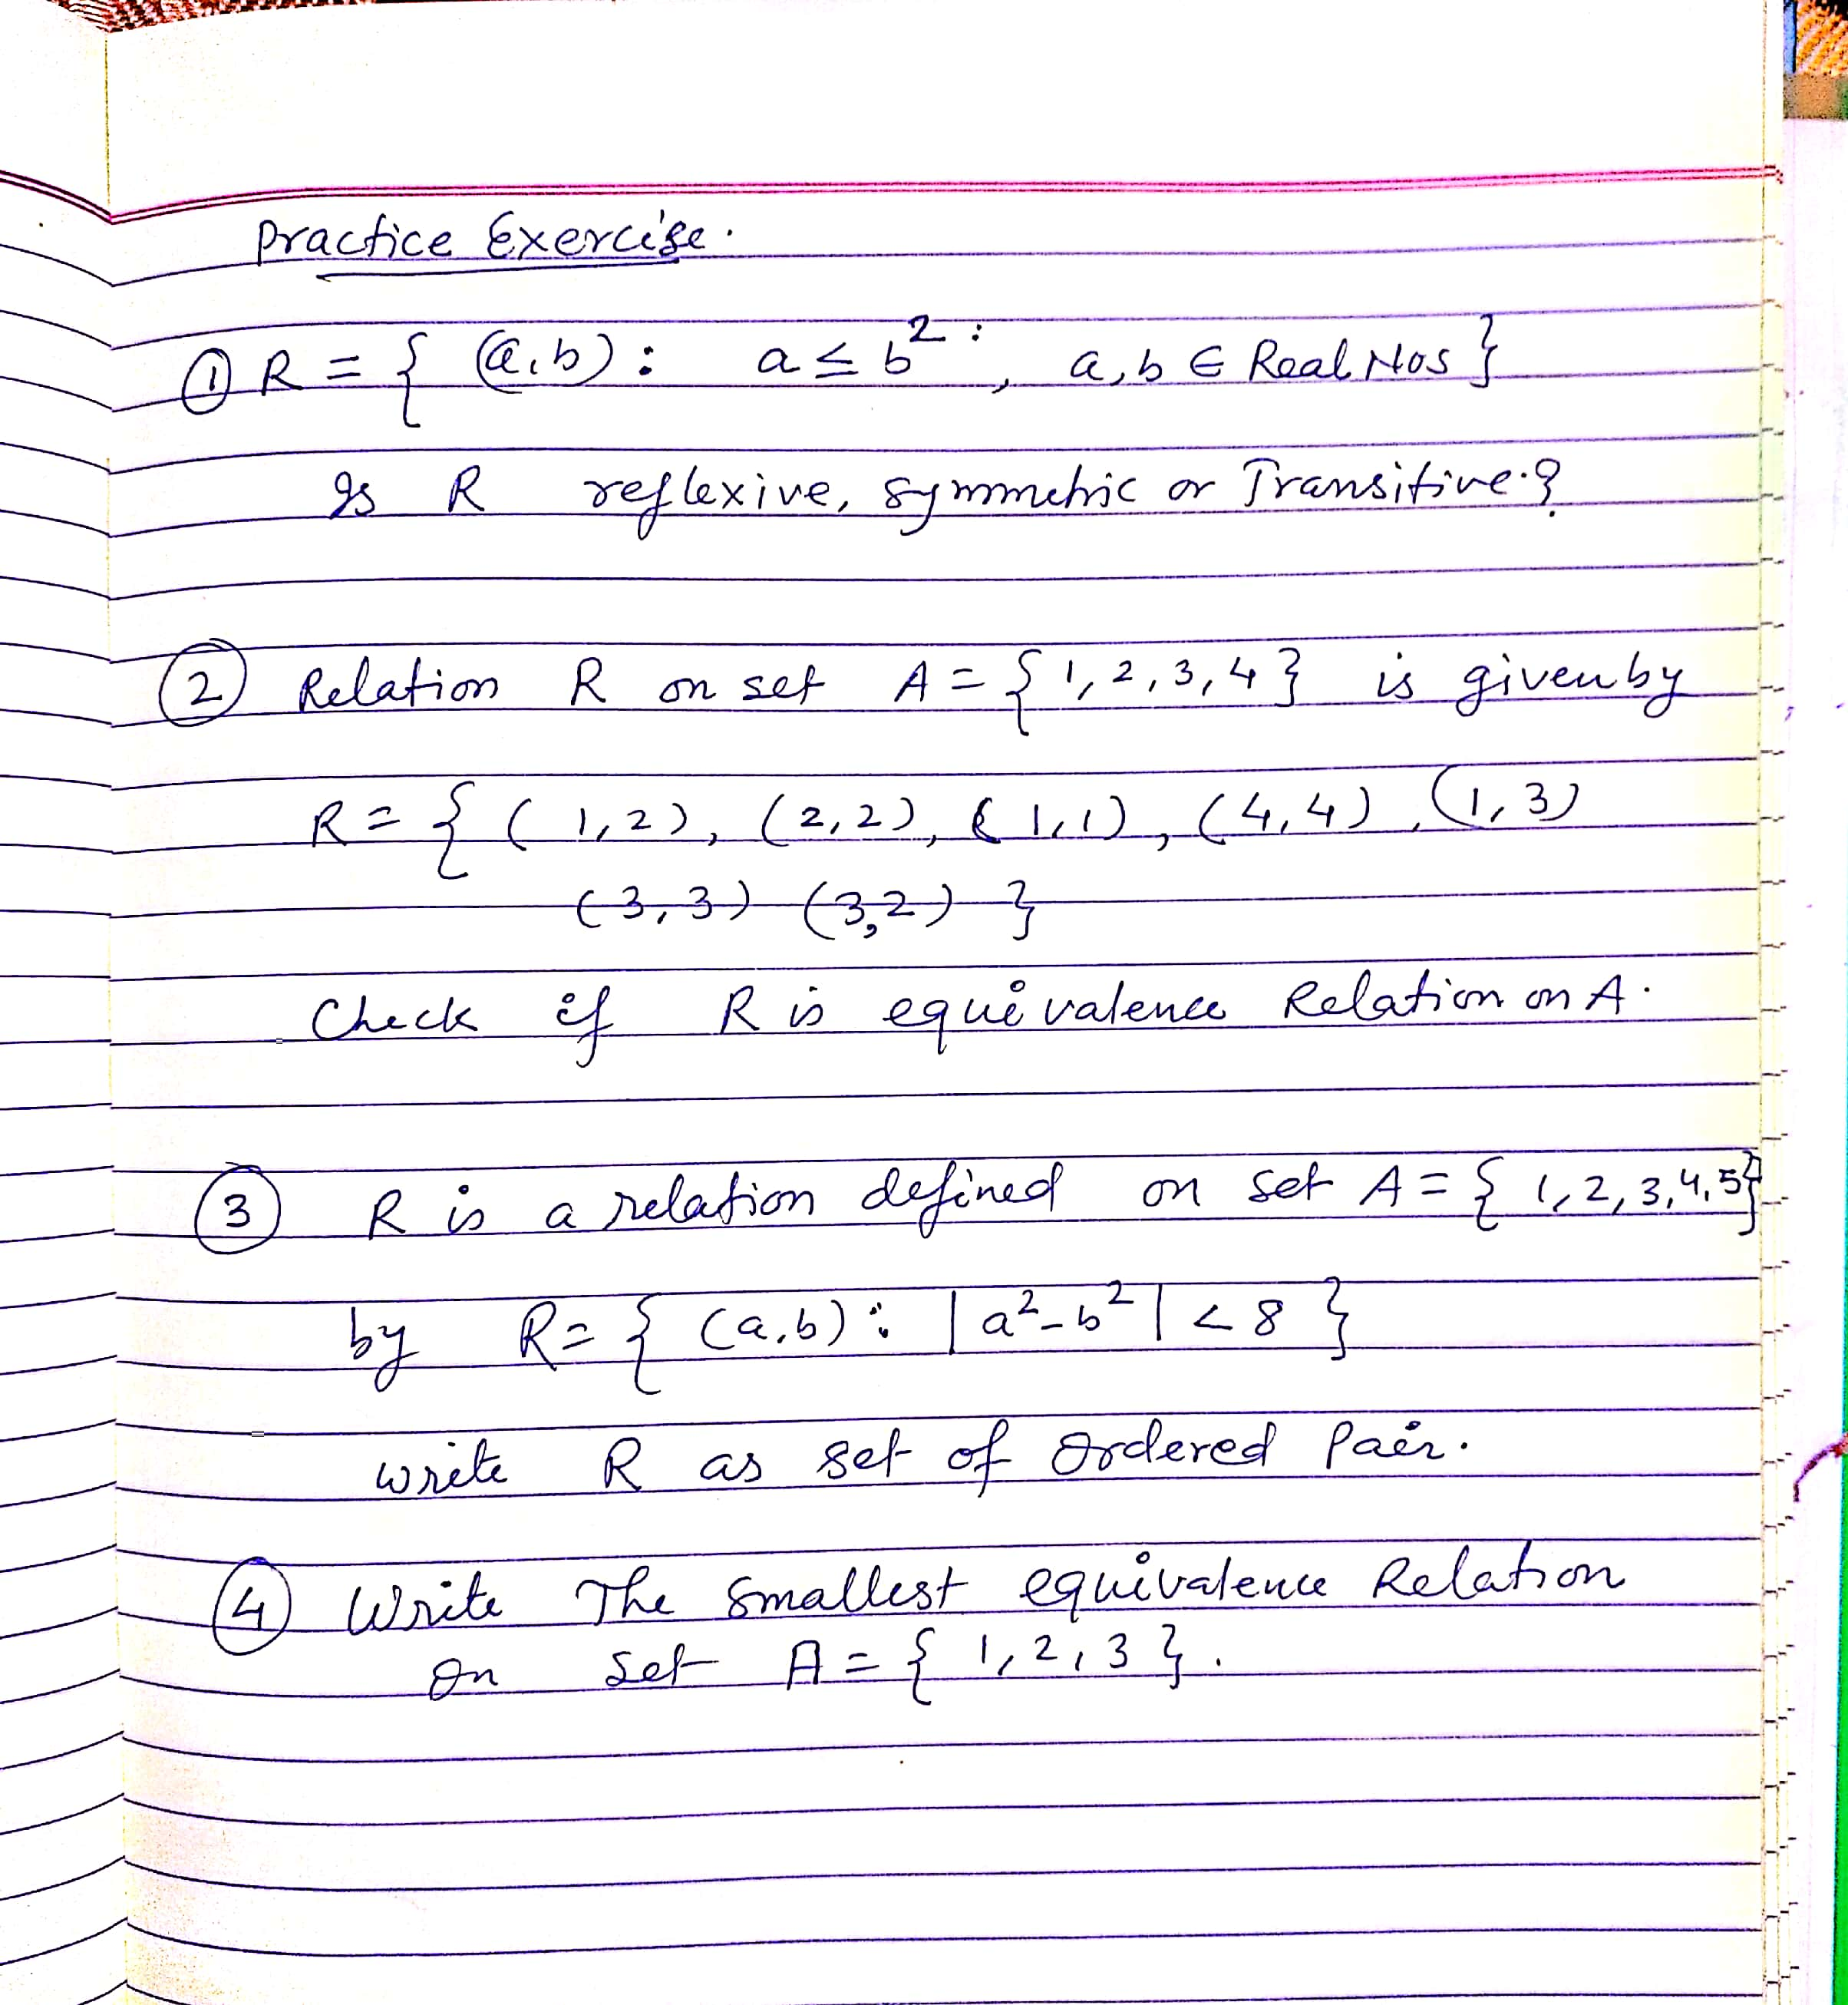 Practice Exercise.
① R = { (a,b) : a ≤ b² : , a,b ∈ Real Nos }
Is R reflexive, symmetric or Transitive.?
② Relation R on set A = { 1,2,3,4 } is given by
R = { ( 1,2 ), ( 2,2 ), ( 1,1 ), ( 4,4 ), (1,3)
(3,3) (3,2) }
Check if R is equivalence Relation on A.
③ R is a relation defined on set A = { 1,2,3,4,5}
by R = { (a,b) : | a² - b² | < 8 }
write R as set of Ordered Pair.
④ Write The Smallest equivalence Relation
on set A = { 1,2,3 }.